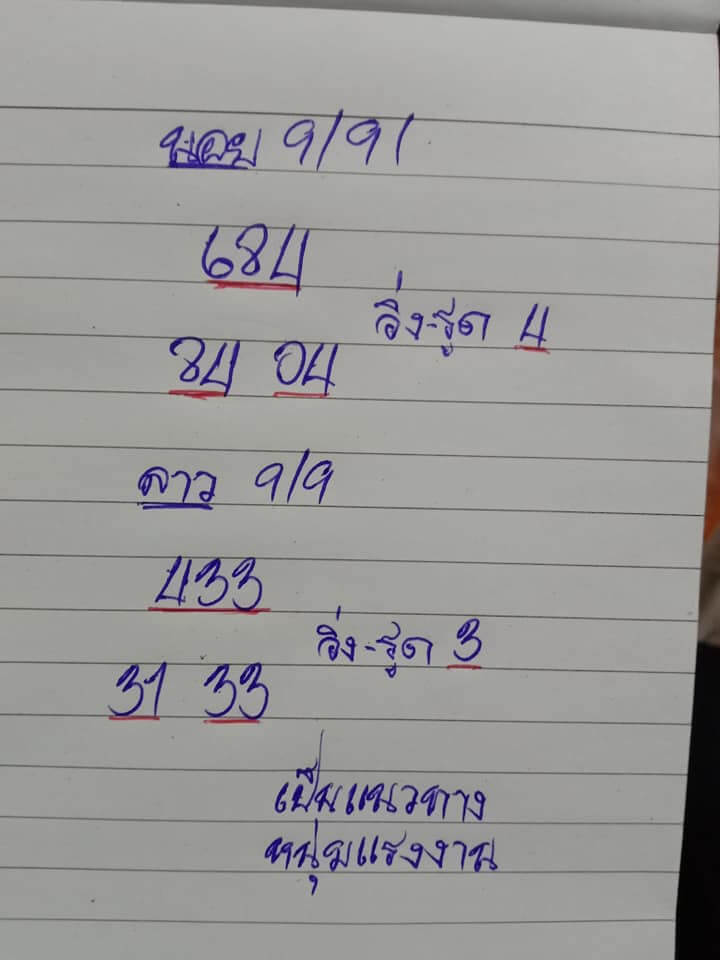 นอย 9/9/
684
วิ่ง-รูด 4
84 04
ลาว 9/9
433
วิ่ง-รูด 3
31 33
เป็นแนวทาง
หนุ่มแรงงาน